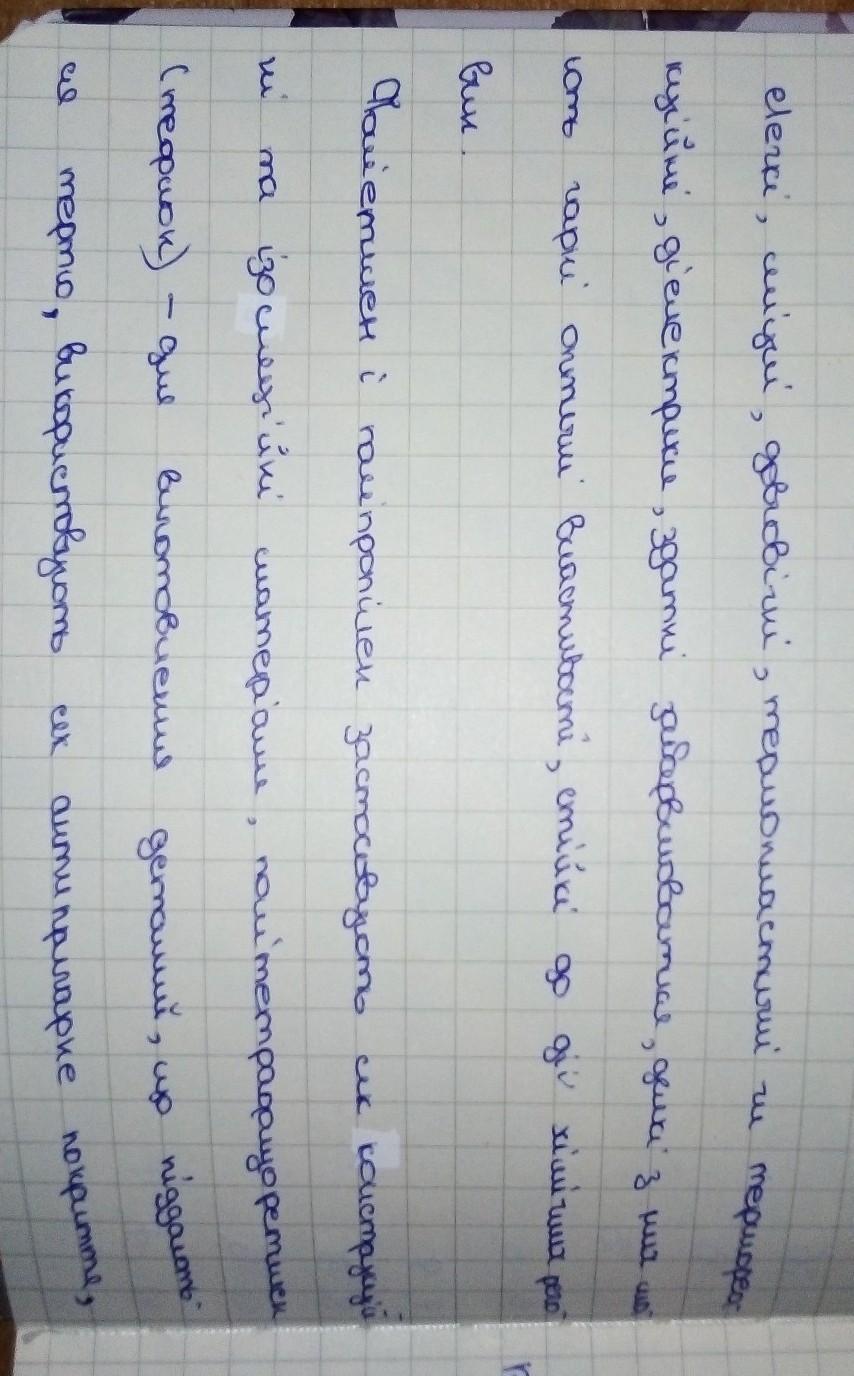 легкі, міцні, довговічні, термопластичні чи термореа
кційні, діелектрики, здатні забарвлюватися, деякі з них ма
ють гарні оптичні властивості, стійкі до дії хімічних речо
вин.
Поліетилен і поліпропілен застосовують як конструкцій
ні та ізоляційні матеріали, політетрафлуоретилен
(тефлон) – для виготовлення деталей, що піддають
ся тертю, використовують як антипригарне покриття,